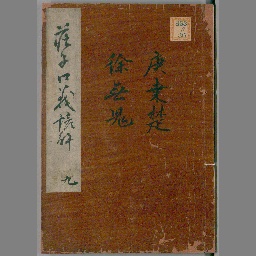 莊子口義棧航 九
庚桑楚
徐无鬼